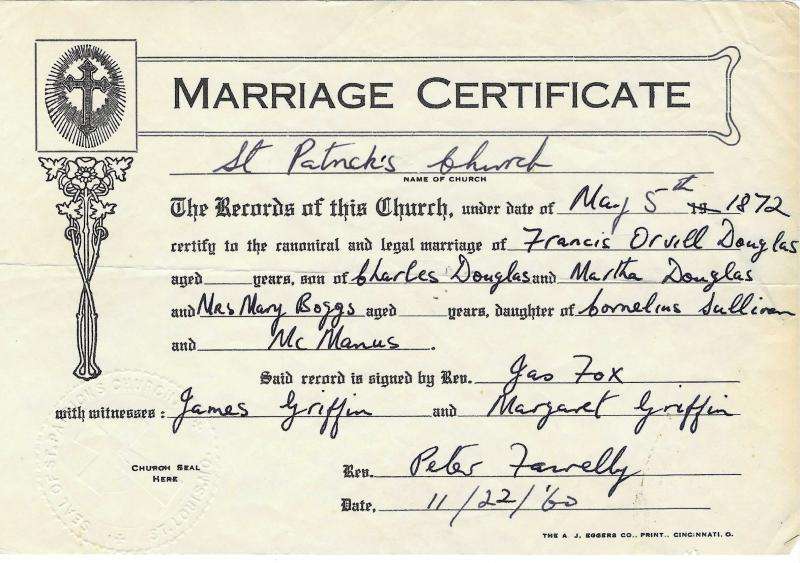 MARRIAGE CERTIFICATE
St Patrick's Church
NAME OF CHURCH
The Records of this Church, under date of May 5th 19 1872
certify to the canonical and legal marriage of Francis Orvill Douglas
aged years, son of Charles Douglas and Martha Douglas
and Mrs Mary Boggs aged years, daughter of Cornelius Sullivan
and Mc Manus.
Said record is signed by Rev. Jas Fox
with witnesses: James Griffin and Margaret Griffin
CHURCH SEAL
HERE
SEAL OF ST. PATRICK'S CHURCH
ST. LOUIS, MO.
Rev. Peter Farrelly
Date, 11/22/'60
THE A. J. EGGERS CO., PRINT., CINCINNATI, O.